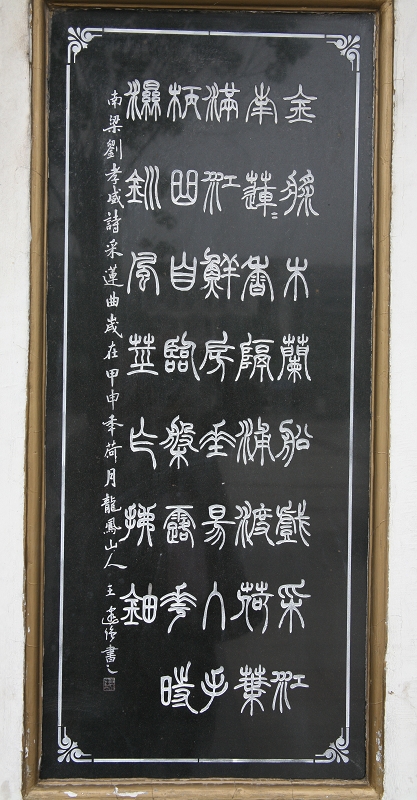 金槳木蘭船戲采江
南蓮〻香隔浦渡荷葉
滿江鮮房垂易入手
柄曲自臨盤露花時
濕釧風莖乍拂鈿
南梁劉孝威詩采蓮曲歲在甲申年荷月龍鳳山人 王書之